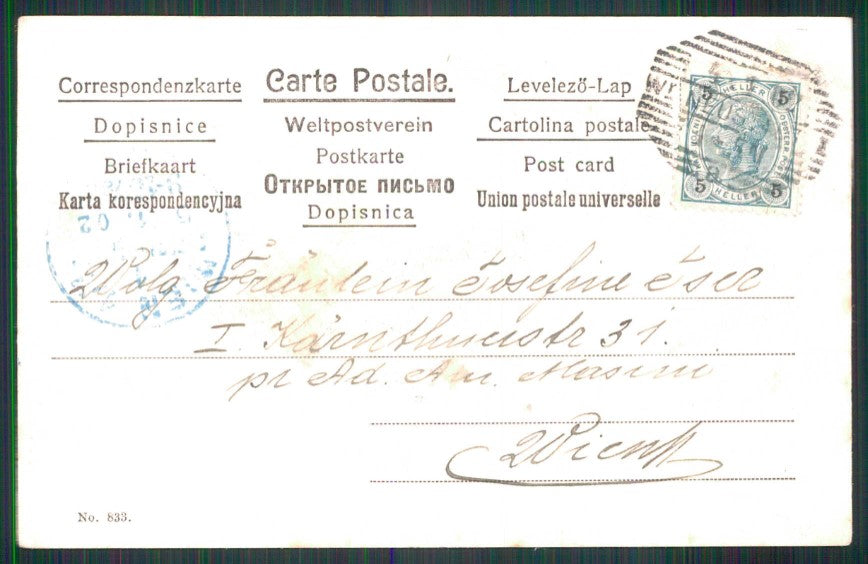 Correspondenzkarte
Dopisnice
Briefkaart
Karta korespondencyjna
Carte Postale.
Weltpostverein
Postkarte
Открытое письмо
Dopisnica
Levelező-Lap
Cartolina postale
Post card
Union postale universelle
5 HELLER 5
5 HELLER 5
Wolg Fräulein Josefine
I. Kärnthnerstr 31.
pr Ad. Am. Masini
Wien
No. 833.